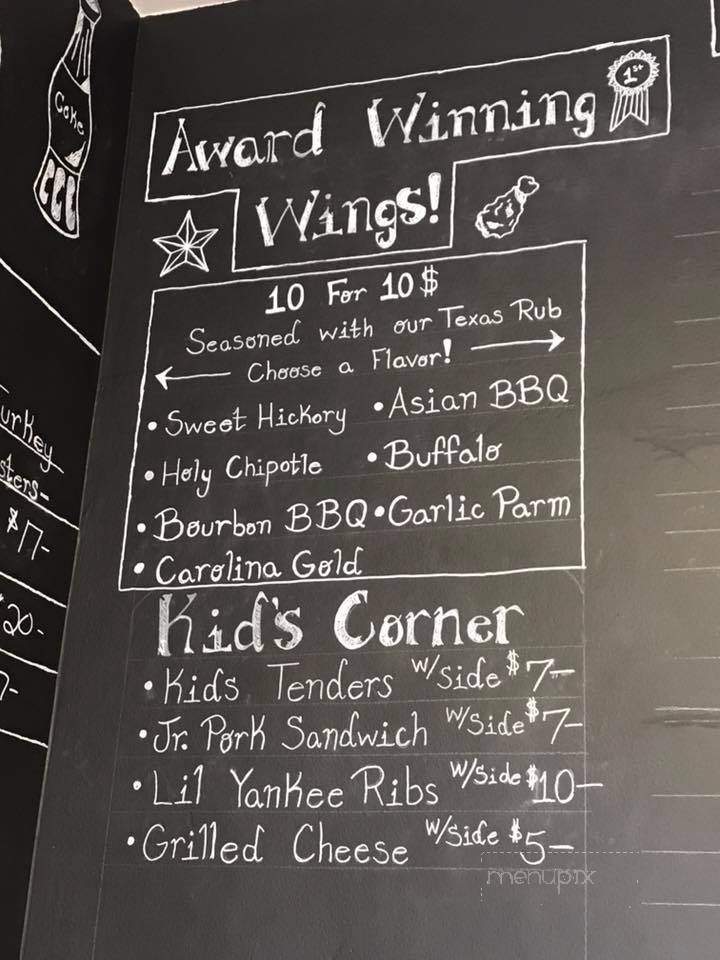 Coke
Award Winning 1st
Wings!
10 For 10$
Seasoned with our Texas Rub
Choose a Flavor!
• Sweet Hickory • Asian BBQ
• Holy Chipotle • Buffalo
• Bourbon BBQ • Garlic Parm
• Carolina Gold
Kid's Corner
• Kids Tenders w/side $7-
• Jr. Pork Sandwich w/side $7-
• Lil Yankee Ribs w/side $10-
• Grilled Cheese w/side $5-
$17-
20-
menupix